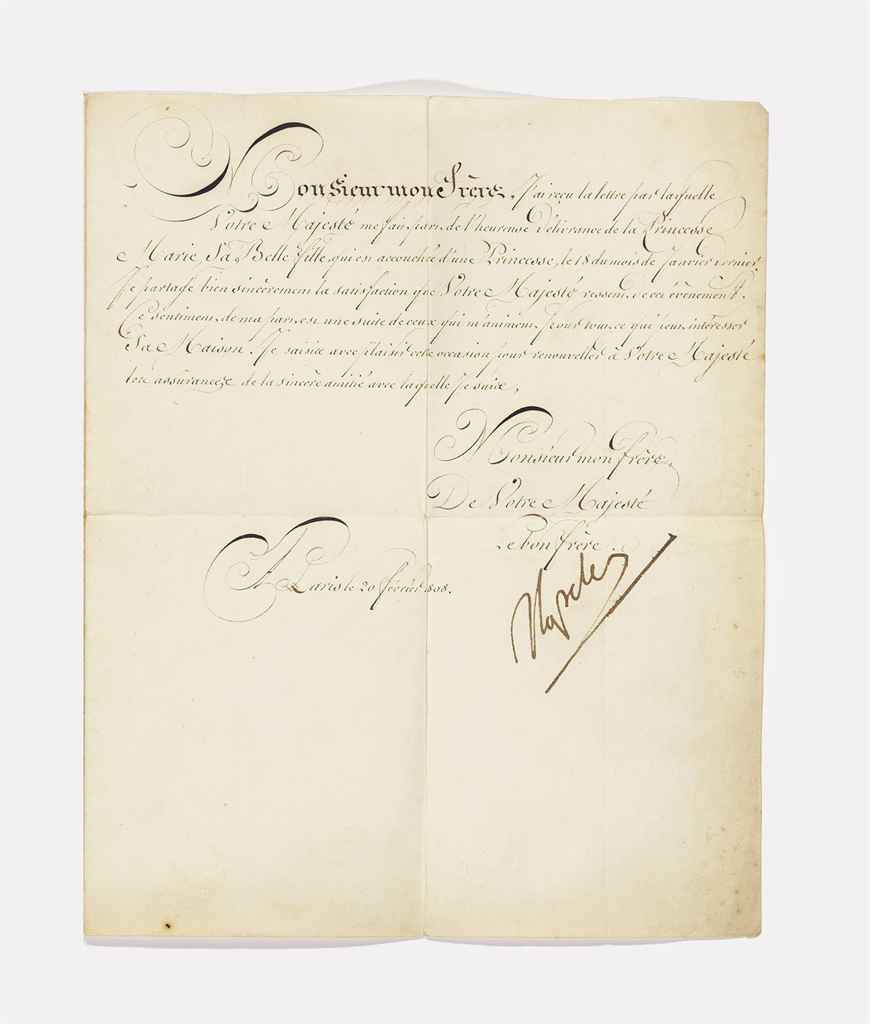 Monsieur mon Frère. J'ai reçu la lettre par laquelle
Votre Majesté me fait part de l'heureuse Délivrance de la Princesse
Marie, Sa Belle fille, qui est accouchée d'une Princesse, le 18 du mois de Janvier dernier.
Je partage bien sincèrement la satisfaction que Votre Majesté ressent de cet évènement.
Ce sentiment de ma part est une suite de ceux qui m'animent pour tout ce qui peut intéresser
Sa Maison. Je saisis avec plaisir cette occasion pour renouveller à Votre Majesté
les assurances de la sincère amitié avec laquelle Je suis,
Monsieur mon frère,
De Votre Majesté
Le bon frère.
A Paris le 20 février 1808.